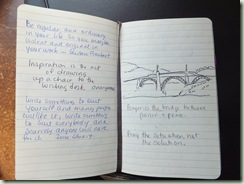 Be regular and ordinary
in your life so you may be
violent and original in
your work – Gustave Flaubert
Inspiration is the act
of drawing
up a chair to the
writing desk. anonymous
Write something to suit
yourself and many people
will like it; write something
to suit everybody and
scarcely anyone will care
for it. Jesse Stuart
the bridge between
the situation, not
the solution.